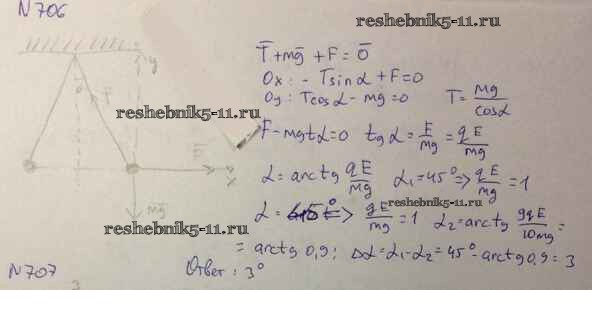 N 706
reshebnik5-11.ru
T̅ + mg̅ + F̅ = 0̅
Ox: - Tsinα + F = 0
Oy: Tcosα - mg = 0 T = mg/cosα
reshebnik5-11.ru
F - mgtgα = 0 tgα = F/mg = qE/mg
α = arctg qE/mg α₁ = 45° => qE/mg = 1
reshebnik5-11.ru
α = 45° => qE/mg = 1 α₂ = arctg 9qE/10mg =
reshebnik5-11.ru
= arctg 0,9; Δα = α₁ - α₂ = 45° - arctg 0,9 = 3
Ответ: 3°
y
T̅
x
mg̅
N 707